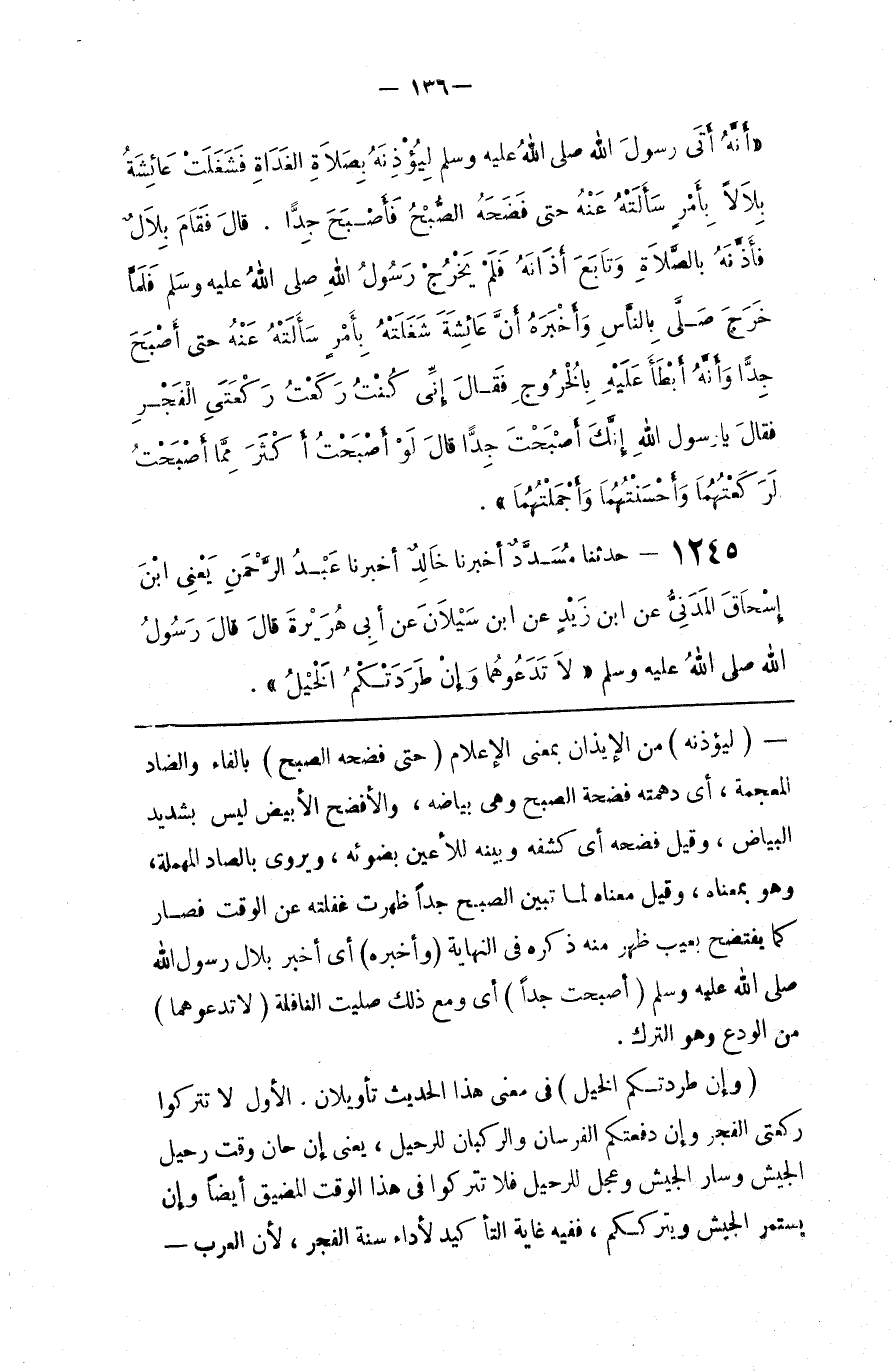 — ١٣٦ —
«أَنَّهُ أَتَى رسولَ الله صلى اللهُ عليه وسلم لِيُؤْذِنَهُ بِصَلاَةِ الغَدَاةِ فَشَغَلَتْ عَائِشَةُ
بِلاَلاً بِأَمْرٍ سَأَلَتْهُ عَنْهُ حتى فَضَحَهُ الصُّبْحُ فَأَصْبَحَ جِدًّا . قالَ فَقَامَ بِلاَلٌ
فَأَذَّنَهُ بالصَّلاَةِ وَتَابَعَ أَذَانَهُ فَلَمْ يَخْرُجْ رَسُولُ اللهِ صلى اللهُ عليه وسَلم فَلَمَّا
خَرَجَ صَلَّى بِالنَّاسِ وَأَخْبَرَهُ أَنَّ عَائِشَةَ شَغَلَتْهُ بِأَمْرٍ سَأَلَتْهُ عَنْهُ حتى أَصْبَحَ
جِدًّا وَأَنَّهُ أَبْطَأَ عَلَيْهِ بِالْخُرُوجِ فَقَالَ إِنِّى كُنْتُ رَكَعْتُ رَكْعَتَىِ الْفَجْرِ
فقالَ يارسول اللهِ إِنَّكَ أَصْبَحْتَ جِدًّا قالَ لَوْ أَصْبَحْتُ أَكْثَرَ مِمَّا أَصْبَحْتُ
لَرَكَعْتُهُمَا وَأَحْسَنْتُهُمَا وَأَجْمَلْتُهُمَا» .
١٢٤٥ — حدثنا مُسَدَّدٌ أخبرنا خَالِدٌ أخبرنا عَبْدُ الرَّحْمَنِ يَعْنِى ابْنَ
إِسْحَاقَ المَدَنِىُّ عن ابن زَيْدٍ عن ابن سَيْلاَنَ عن أَبِى هُرَيْرةَ قالَ قالَ رَسُولُ
الله صلى اللهُ عليه وسلم « لاَ تَدَعُوهُمَا وَإِنْ طَرَدَتْكُمُ الْخَيْلُ » .
— ( ليؤذنه ) من الإيذان بمعنى الإعلام ( حتى فضحه الصبح ) بالفاء والضاد
المعجمة ، أى دهمته فضحة الصبح وهى بياضه ، والأفضح الأبيض ليس بشديد
البياض ، وقيل فضحه أى كشفه وبينه للأعين بضوئه ، ويروى بالصاد المهملة،
وهو بمعناه ، وقيل معناه لما تبين الصبح جداً ظهرت غفلته عن الوقت فصار
كما يفتضح بعيب ظهر منه ذكره فى النهاية (وأخبره) أى أخبر بلال رسول الله
صلى الله عليه وسلم ( أصبحت جداً ) أى ومع ذلك صليت النافلة ( لا تدعوهما )
من الودع وهو الترك .
( وإن طردتكم الخيل ) فى معنى هذا الحديث تأويلان . الأول لا تتركوا
ركعتى الفجر وإن دفعتكم الفرسان والركبان للرحيل ، يعنى إن حان وقت رحيل
الجيش وسار الجيش وعجل للرحيل فلا تتركوا فى هذا الوقت المضيق أيضاً وإن
يستمر الجيش ويترككم ، ففيه غاية التأكيد لأداء سنة الفجر ، لأن العرب —